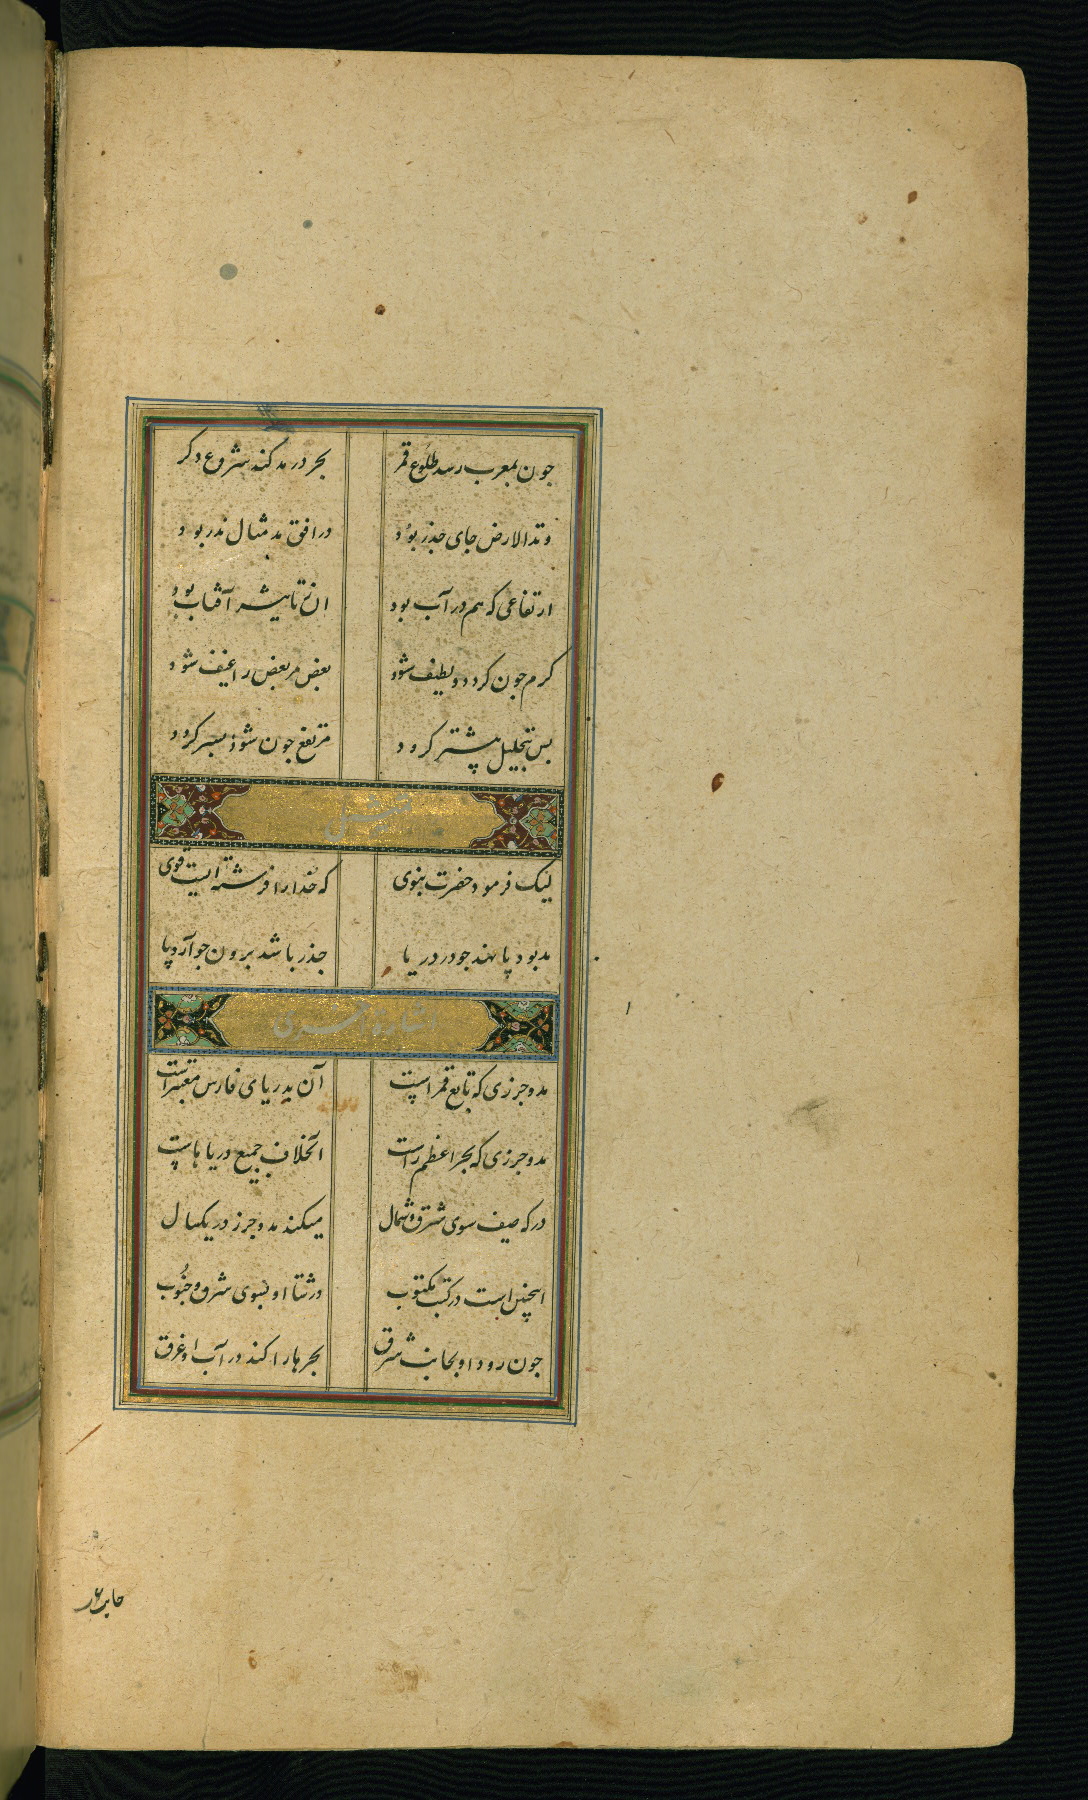 جون بمغرب رسد طلوع قمر بحر در مد کند شروع دکر
وتد الارض جای جذر بود در افق مد مثال ندر بود
ارتفاعی که هم در آب بود آفتاب بود
کرم جون کردد و لطیف شود بعض مر بعض را عنیف شود
بس تحلیل پیشتر کردد مرتفع جون شود کردد
تمثیل
لیک فرمود حضرت نبوی که خدا را فرشته ایست قوی
مد بود پا نهد جو در دریا جذر باشد برون جو آرد پا
اشارة اخری
مد و جرزی که تابع قمر است آن بدریای فارس معتبر است
مد و جرزی که بحر اعظم راست بخلاف جمیع دریاهاست
در که صیف سوی شرق و شمال میکند مد و جرز در یکسال
اینچنین است در کتب مکتوب در شتا او بسوی شرق و جنوب
جون رود او بجانب شرق بحرها را کند در آب او غرق
جانب